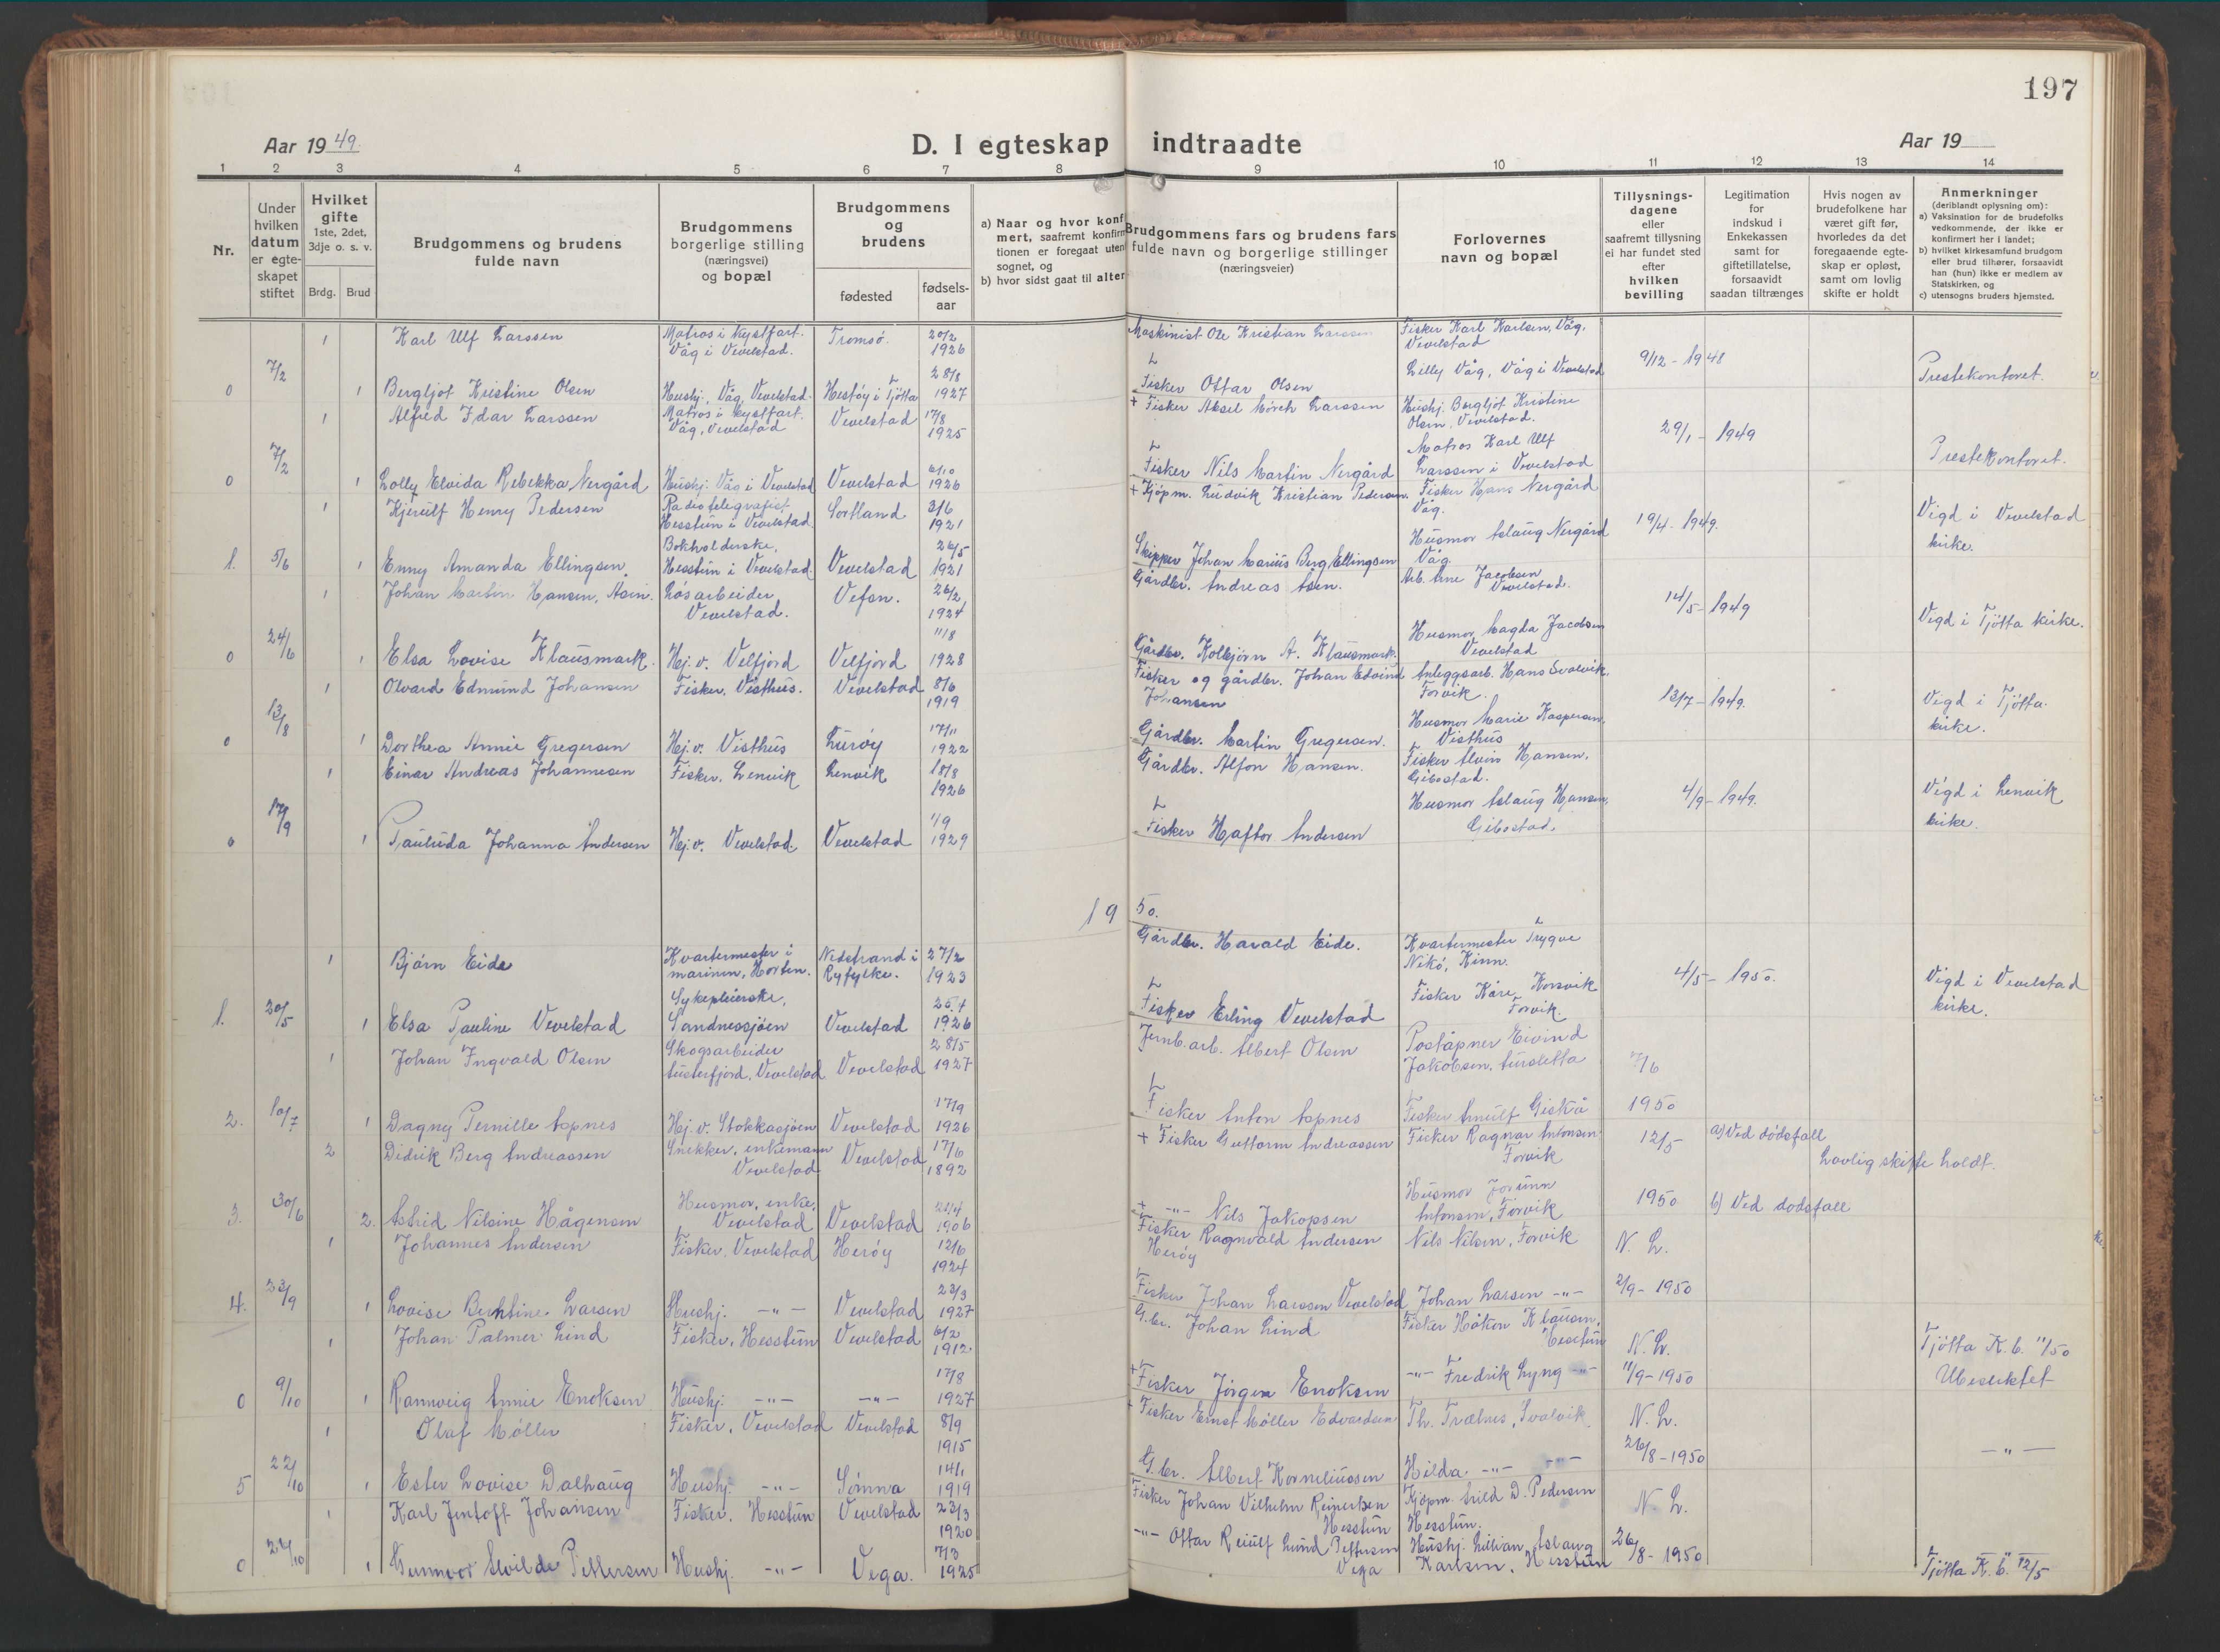 197
Aar 1949.
D. I egteskap indtraadte
Aar 19
1 2 3 4 5 6 7 8 9 10 11 12 13 14
Nr.
Under hvilken datum er egteskapet stiftet
Hvilket gifte 1ste, 2det, 3dje o. s. v.
Brdg. Brud
Brudgommens og brudens fulde navn
Brudgommens borgerlige stilling (næringsvei) og bopæl
Brudgommens og brudens
fødested
fødsels-aar
a) Naar og hvor konf
mert, saafremt konfirm
tionen er foregaat uten
sognet, og
b) hvor sidst gaat til alter
Brudgommens fars og brudens fars fulde navn og borgerlige stillinger (næringsveier)
Forlovernes navn og bopæl
Tillysnings-dagene eller saafremt tillysning ei har fundet sted efter hvilken bevilling
Legitimation for indskud i Enkekassen samt for giftetillatelse, forsaavidt saadan tiltrænges
Hvis nogen av brudefolkene har været gift før, hvorledes da det foregaaende egteskap er opløst, samt om lovlig skifte er holdt
Anmerkninger
(deriblandt oplysning om):
a) Vaksination for de brudefolks vedkommende, der ikke er konfirmert her i landet;
b) hvilket kirkesamfund brudgom eller brud tilhører, forsaavidt han (hun) ikke er medlem av Statskirken, og
c) utensogns bruders hjemsted.
1 Karl Ulf Larssen Matros i kystfart. Våg i Vevelstad. Tromsø. 20/2 1926 Maskinist Ole Kristian Larssen Fisker Karl Karlsen, Våg, Vevelstad
0 7/2 1 Bergljot Kristine Olsen Hushj., Våg, Vevelstad. Hestøy i Tjøtta 28/8 1927 Fisker Ottar Olsen Lilly Våg, Våg i Vevelstad 9/12 - 1948 Prestekontoret.
1 Alfred Idar Larssen Matros i kystfart. Våg, Vevelstad Vevelstad 17/8 1925 + Fisker Aksel Mørch Larssen Hushj. Bergljot Kristine Olsen, Vevelstad.
0 7/2 1 Lolly Elvida Rebekka Nergård Hushj. Våg i Vevelstad Vevelstad 6/10 1926 Fisker Nils Martin Nergård Matros Karl Ulf Larssen i Vevelstad 29/1 - 1949 Prestekontoret.
1 Kjerulf Henry Pedersen Radiotelegrafist Hesstun i Vevelstad. Sortland 3/6 1921 + Kjøpm. Ludvik Kristian Pedersen. Fisker Hans Nergård Våg.
1. 5/6 1 Enny Amanda Ellingsen Bokholderske, Hesstun i Vevelstad. Vevelstad 26/5 1921 Skipper Johan Marius Berg Ellingsen Husmor Aslaug Nergård Våg 19/4 - 1949. Vigd i Vevelstad kirke.
1 Johan Martin Hansen, Åsen. Løsarbeider, Vevelstad. Vefsn. 26/2 1924 Gårdbr. Andreas Åsen. Arb. Arne Jacobsen Vevelstad.
0 24/6 1 Elsa Lovise Klausmark. Hj. v. Velfjord Velfjord 11/8 1928 Gårdbr. Kolbjørn A. Klausmark. Husmor Magda Jacobsen Vevelstad 14/5 - 1949 Vigd i Tjøtta kirke.
1 Olvard Edmund Johansen Fisker, Visthus. Vevelstad 8/6 1919 Fisker og gårdbr. Johan Edvind Johansen Anleggsarb. Hans Svalvik, Forvik.
0 13/8 1 Dorthea Annie Gregersen Hj. v. Visthus Lurøy 17/11 1922 Gårdbr. Martin Gregersen. Husmor Marie Kaspersen, Visthus 13/7 - 1949. Vigd i Tjøtta kirke.
1 Einar Andreas Johannesen Fisker, Lenvik Lenvik 18/8 1926 Gårdbr. Alfon Hansen. Fisker Alvin Hansen, Gibostad.
0 17/9 1 Paulida Johanna Andersen Hj. v. Vevelstad. Vevelstad 1/9 1929 Fisker Haftor Andersen Husmor Aslaug Hansen, Gibostad. 4/9 - 1949. Vigd i Lenvik kirke.
1950.
1 Bjørn Eide Kvartermester i marinen, Horten. Nedstrand i Ryfylke. 27/2 1923 Gårdbr. Harald Eide. Kvartermester Trygve Nikö, Kinn.
1. 20/5 1 Elsa Pauline Vevelstad Sykepleierske, Sandnessjøen Vevelstad 25.4 1926 Fisker Erling Vevelstad Fisker Kåre Korsvik Forvik. 4/5 - 1950. Vigd i Vevelstad kirke.
1 Johan Ingvald Olsen Skogsarbeider Austerfjord, Vevelstad Vevelstad 28/5 1927 Jernb.arb. Albert Olsen Poståpner Eivind Jakobsen, Aursletta 7/6
2. 10/7 1 Dagny Pernille Aspnes Hj. v. Stokkasjøen Vevelstad 17/9 1926 Fisker Anton Aspnes Fisker Arnulf Giskå 1950
2 Didrik Berg Andreassen Snekker, enkemann Vevelstad Vevelstad 17/6 1892 + Fisker Guttorm Andreassen Fisker Ragnar Antonsen Forvik 12/5 a) Ved dødsfall Lovlig skifte holdt.
3. 30/6 2. Astrid Nilsine Hågensen Husmor, enke, Vevelstad Vevelstad 21/4 1906 + -"- Nils Jakopsen Husmor Jorunn Antonsen, Forvik 1950 b) Ved dødsfall
1 Johannes Andersen Fisker, Vevelstad Herøy 12/6 1924 Fisker Ragnvald Andersen Herøy Nils Nilsen, Forvik N. L.
4. 23/9 1 Lovise Berntine Larsen Hushj. -"- Vevelstad 23/3 1927 Fisker Johan Larssen Vevelstad Johan Larsen -"- 2/9 - 1950
1 Johan Palmer Lind Fisker, Hesstun Vevelstad 6/2 1912 G.br. Johan Lind Fisker Håkon Klausen, Hesstun N. L. Tjøtta K. b. 11/50
0 9/10 1 Rannveig Annie Enoksen Hushj. -"- -"- 17/8 1927 + Fisker Jørgen Enoksen -"- Fredrik Lyng -"- 11/9 - 1950 Ubesiktet
1 Olaf Møller Fisker, Vevelstad Vevelstad 8/9 1915 + Fisker Ernst Møller Edvardsen Th. Trælnes, Svalvik N. L.
5 22/10 1 Ester Lovise Dalhaug Hushj. -"- Sømna 14/1 1919 G. br. Albert Korneliussen Hilda -"- -"- 26/8 - 1950 -"-
1 Karl Jentoft Johansen Fisker, Hesstun Vevelstad 23/3 1920 Fisker Johan Vilhelm Reinertsen Hesstun Kjøpm. Arild D. Pedersen Hesstun. N. L.
0 24/10 1 Gunnvor Alvilde Pettersen Hushj. -"- Vega. 7/3 1925 -"- Ottar Reiulf Lund Pettersen Vega Hushj. Lillian Aslaug Karlsen, Hesstun 26/8 - 1950 Tjøtta K. b. 12/5